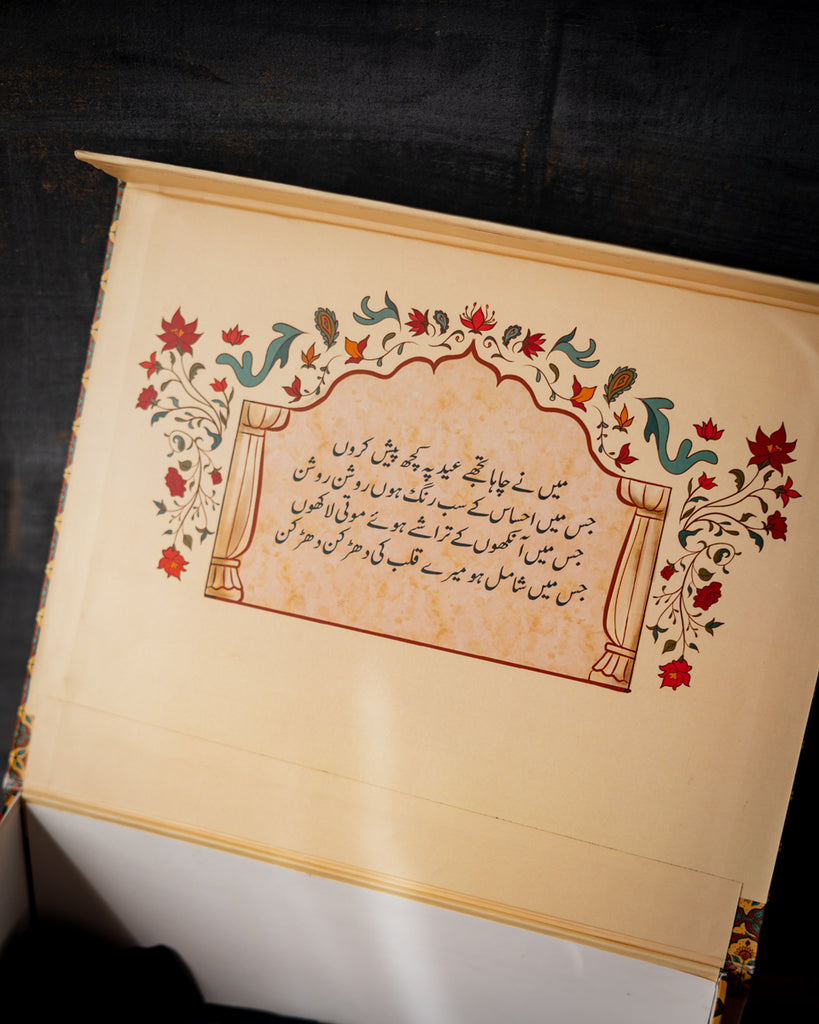 میں نے چاہا تجھے عید پہ کچھ پیش کروں
جس میں احساس کے سب رنگ ہوں روشن روشن
جس میں آنکھوں کے تراشے ہوئے موتی لاکھوں
جس میں شامل ہو میرے قلب کی دھڑکن دھڑکن